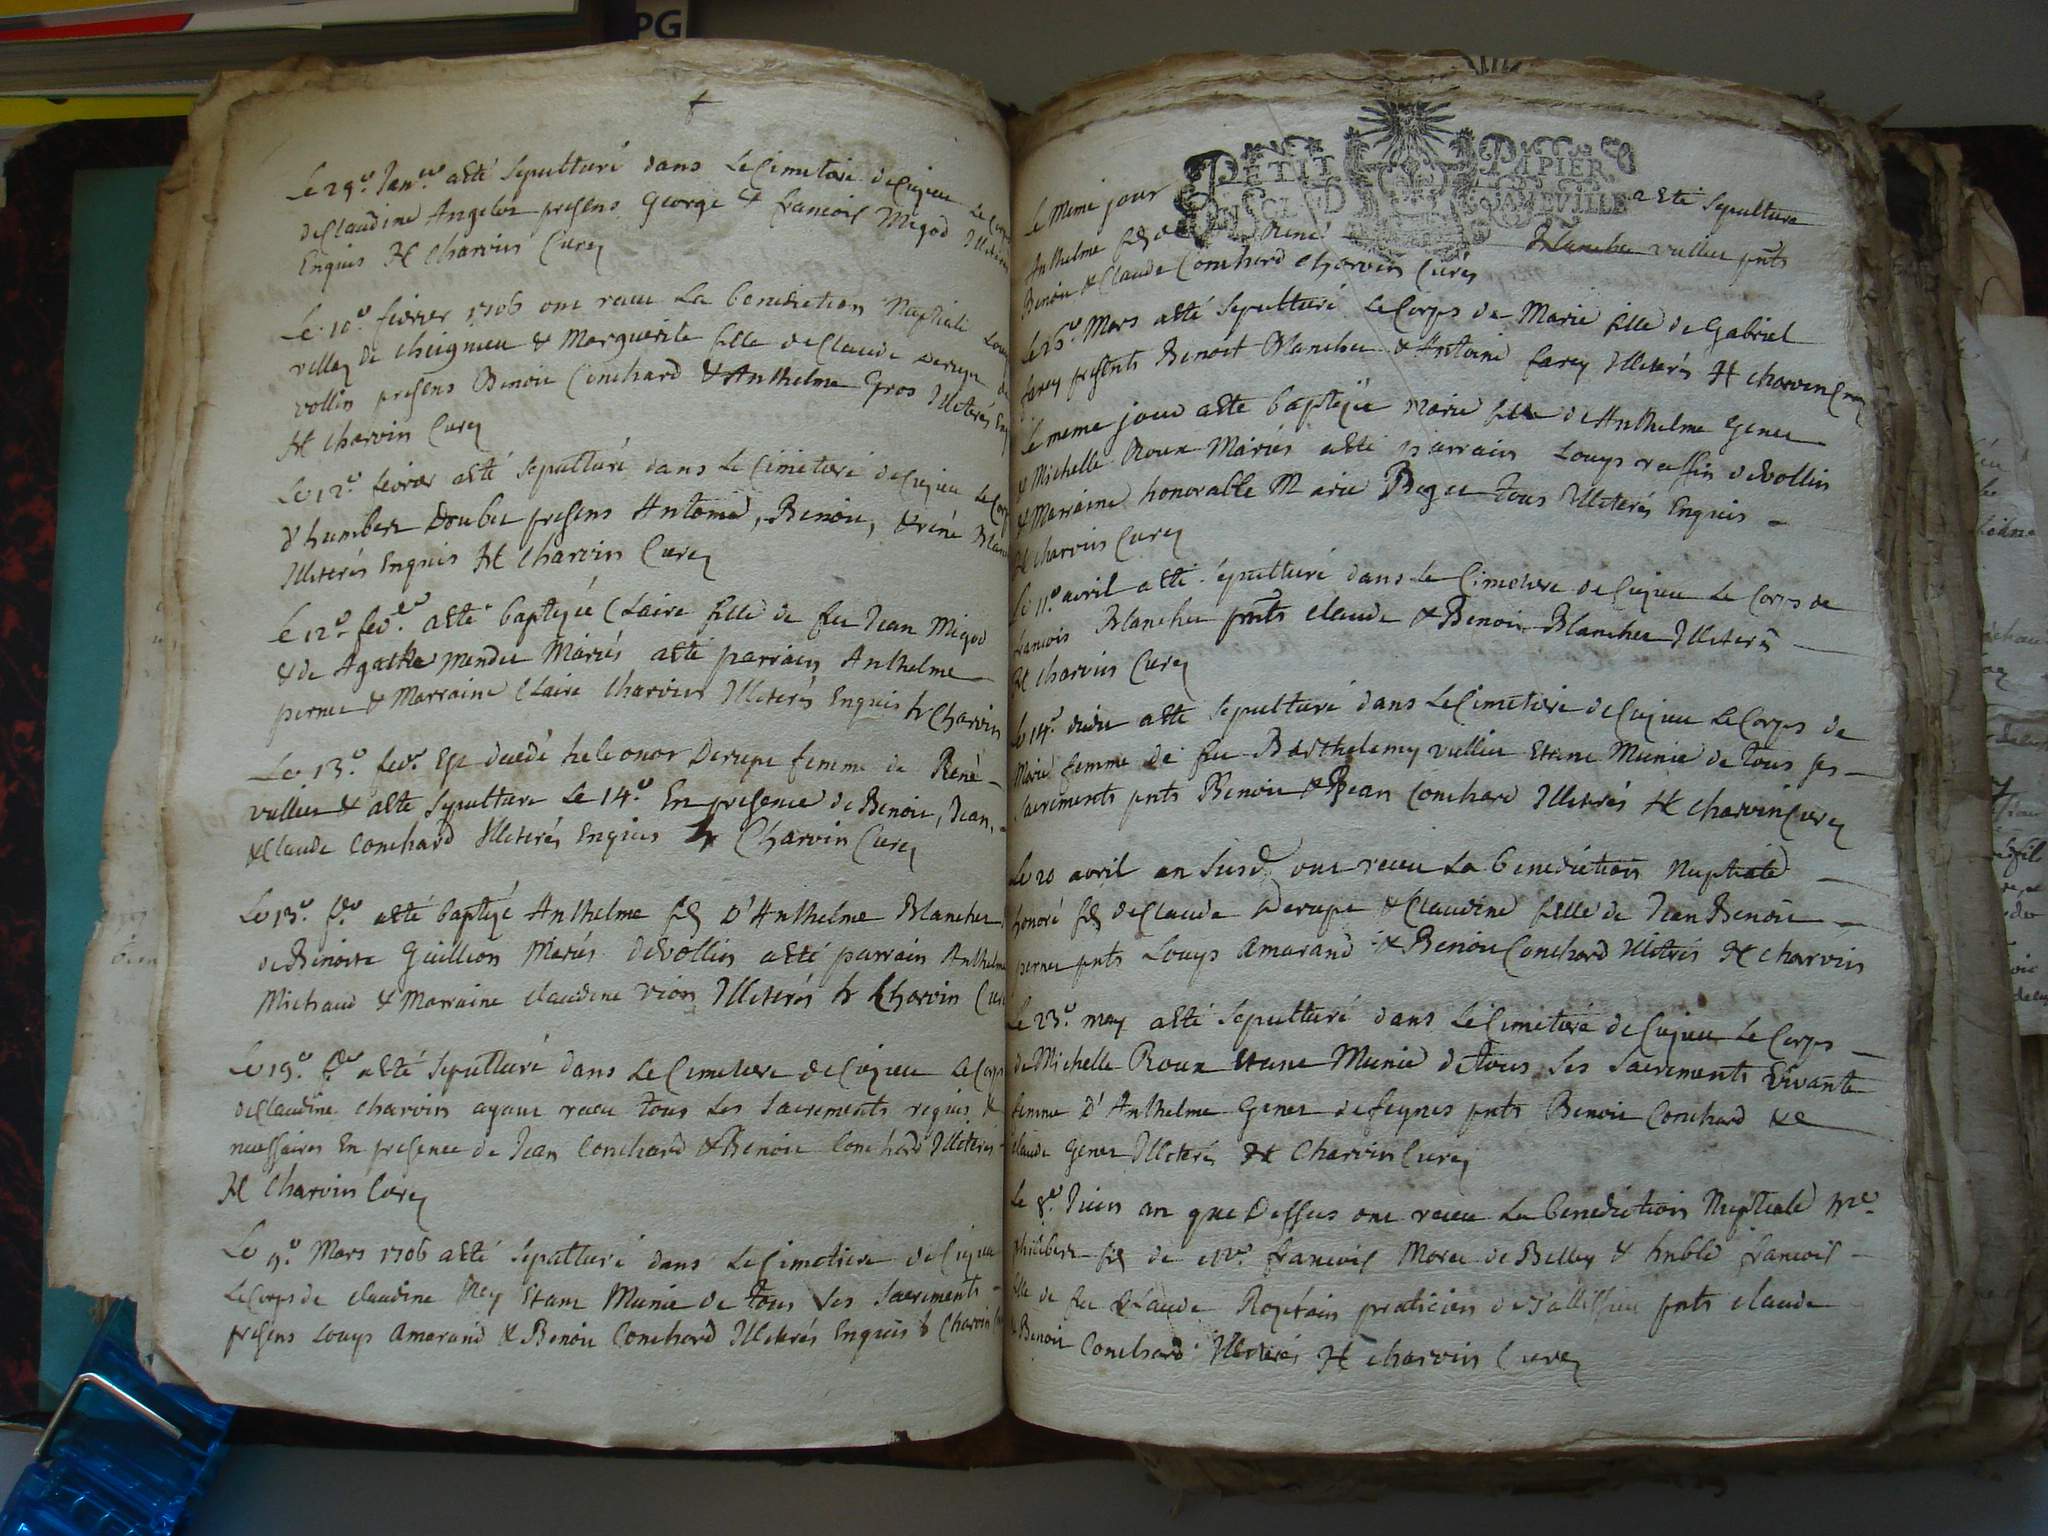 PG
Le 29e. Janer. a esté sepulturé dans Le Cimetiere de Cuzieu Le Corps
de Claudine Angelot presens George & francois Migod Illiterés
Enquis H Charvin Curez
Le 10e. fevrier 1706 ont receu La benediction Nuptiale Louys
villez de Cheignieu & Marguerite fille de Claude Derupe de
vollin presens Benoit Conchard & Anthelme Gros Illiterés Enq
H Charvin Curez
Le 12e. fevrier a esté sepulturé dans Le Cimetiere de Cuzieu Le Corps
d'humbert Doubet presens Antoine, Benoit, & réné Blan
Illiterés Enquis H Charvin Curez
Le 12e. fevr. a esté baptizée Claire fille de feu Jean Migod
& de Agathe Mendet Mariés a esté parrain Anthelme
pernet & Marraine Claire Charvin Illiterés Enquis h Charvin
Le 13e. fevr. Est decedé heleonor Derupe femme de René
vullier & a esté sepulture Le 14e. En presence de Benoit, Jean,
& Claude Conchard Illiterés Enquis h Charvin Curez
Le 13e. fr. a esté baptizé Anthelme fils D'Anthelme Blanchet
de Benoite Guillion Mariés de vollin a esté parrain Anthelme
Michaud & Marraine Claudine vion Illiterés h Charvin Cur
Le 19e. fr. a esté sepulturé dans Le Cimetiere de Cuzieu Le Corps
de Claudine Charvin ayant receu tous Les sacrements requis &
necessaires En presence de Jean Conchard & Benoit Conchard Illiterés
H Charvin Curez
Le 9e. Mars 1706 a esté sepulturé dans Le Cimetiere de Cuzieu
Le Corps de Claudine Rey Etant Munie de tous Les Sacrements
presens Louys Amarand & Benoit Conchard Illiterés Enquis h Charvin
PETIT PAPIER
Le Meme jour a esté sepulture
Anthelme fils de René Blanchet vullier pnts
Benoit & Claude Conchard Charvin Curés
Le 26e. Mars a esté sepulturé Le Corps de Marie fille de Gabriel
farey presents Benoit Blanchet & Antoine farey Illiterés H Charvin Curez
Le meme jour a este baptizée Marie fille de Anthelme Genet
& Michelle Roux Mariés a esté parrain Louys raffin de vollin
& Marraine honorable Marie Boget tous Illiterés Enquis
H Charvin Curez
Le 11e. avril a esté sepulturé dans Le Cimetiere de Cuzieu Le Corps de
francois Blanchet pnts Claude & Benoit Blanchet Illiterés
H Charvin Curez
Le 14e. dudit a esté sepulturé dans Le Cimetiere de Cuzieu Le Corps de
Marie femme de feu Barthelemy vullier Etant Munie de tous ses
sacrements pnts Benoit & Jean Conchard Illiterés H Charvin Curez
Le 20 avril an susd. ont receu La benediction Nuptiale
honoré fils de Claude Derupe & Claudine fille de Jean Benoit
pernet pnts Louys Amarand & Benoit Conchard Illiterés H Charvin
Le 23e. may a esté sepulturé dans Le Cimetiere de Cuzieu Le Corps
de Michelle Roux Etant Munie de tous Les Sacrements vivante
femme D'Anthelme Genet de feynes pnts Benoit Conchard &
Claude Genet Illiterés H Charvin Curez
Le 8e. Juin an que Dessus ont receu La benediction Nuptiale Mre.
philibert fils de Mre. francois Moret de Belley & hnble francois
fille de feu Claude Rozetain praticien de Tallissieu pnts Claude
& Benoit Conchard Illiterés H Charvin Curez